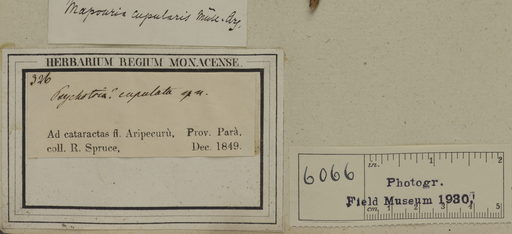 Mapouria cupularis Müll-Arg.
HERBARIUM REGIUM MONACENSE.
326
Psychotria? cupulata sp n.
Ad cataractas fl. Aripecurù, Prov. Parà,
coll. R. Spruce, Dec. 1849.
6066
in. 1 2
Photogr.
Field Museum 1930,
cm. 1 2 3 4 5